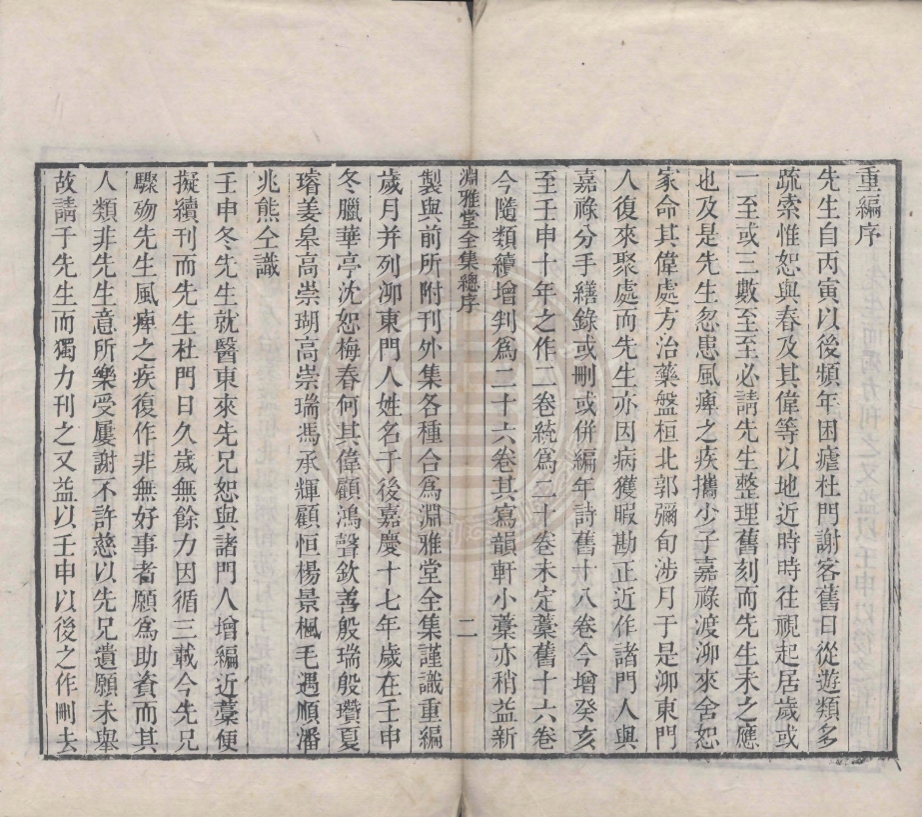 重編序
先生自丙寅以後頻年困瘧杜門謝客舊日從遊類多
疏索惟恕與春及其偉等以地近時時往視起居歲或
一至或三數至至必請先生整理舊刻而先生未之應
也及是先生忽患風痺之疾攜少子嘉祿渡泖來舍恕
家命其偉處方治藥盤桓北郭彌旬涉月于是泖東門
人復來聚處而先生亦因病獲暇勘正近作諸門人與
嘉祿分手繕錄或刪或併編年詩舊十八卷今增癸亥
至壬申十年之作二卷統爲二十卷未定藁舊十六卷
今隨類續增判爲二十六卷其寫韻軒小藁亦稍益新
淵雅堂全集總序 二
製與前所附刊外集各種合爲淵雅堂全集謹識重編
歲月并列泖東門人姓名于後嘉慶十七年歲在壬申
冬臘華亭沈恕梅春何其偉顧鴻聲欽善殷瑞殷瓚夏
璿姜皋高崇瑚高崇瑞馮承輝顧恒楊景楓毛遇順潘
兆熊仝識
壬申冬先生就醫東來先兄恕與諸門人增編近藁便
擬續刊而先生杜門日久歲無餘力因循三載今先兄
驟歿先生風痺之疾復作非無好事者願爲助資而其
人類非先生意所樂受屢謝不許慈以先兄遺願未舉
故請于先生而獨力刊之又益以壬申以後之作刪去